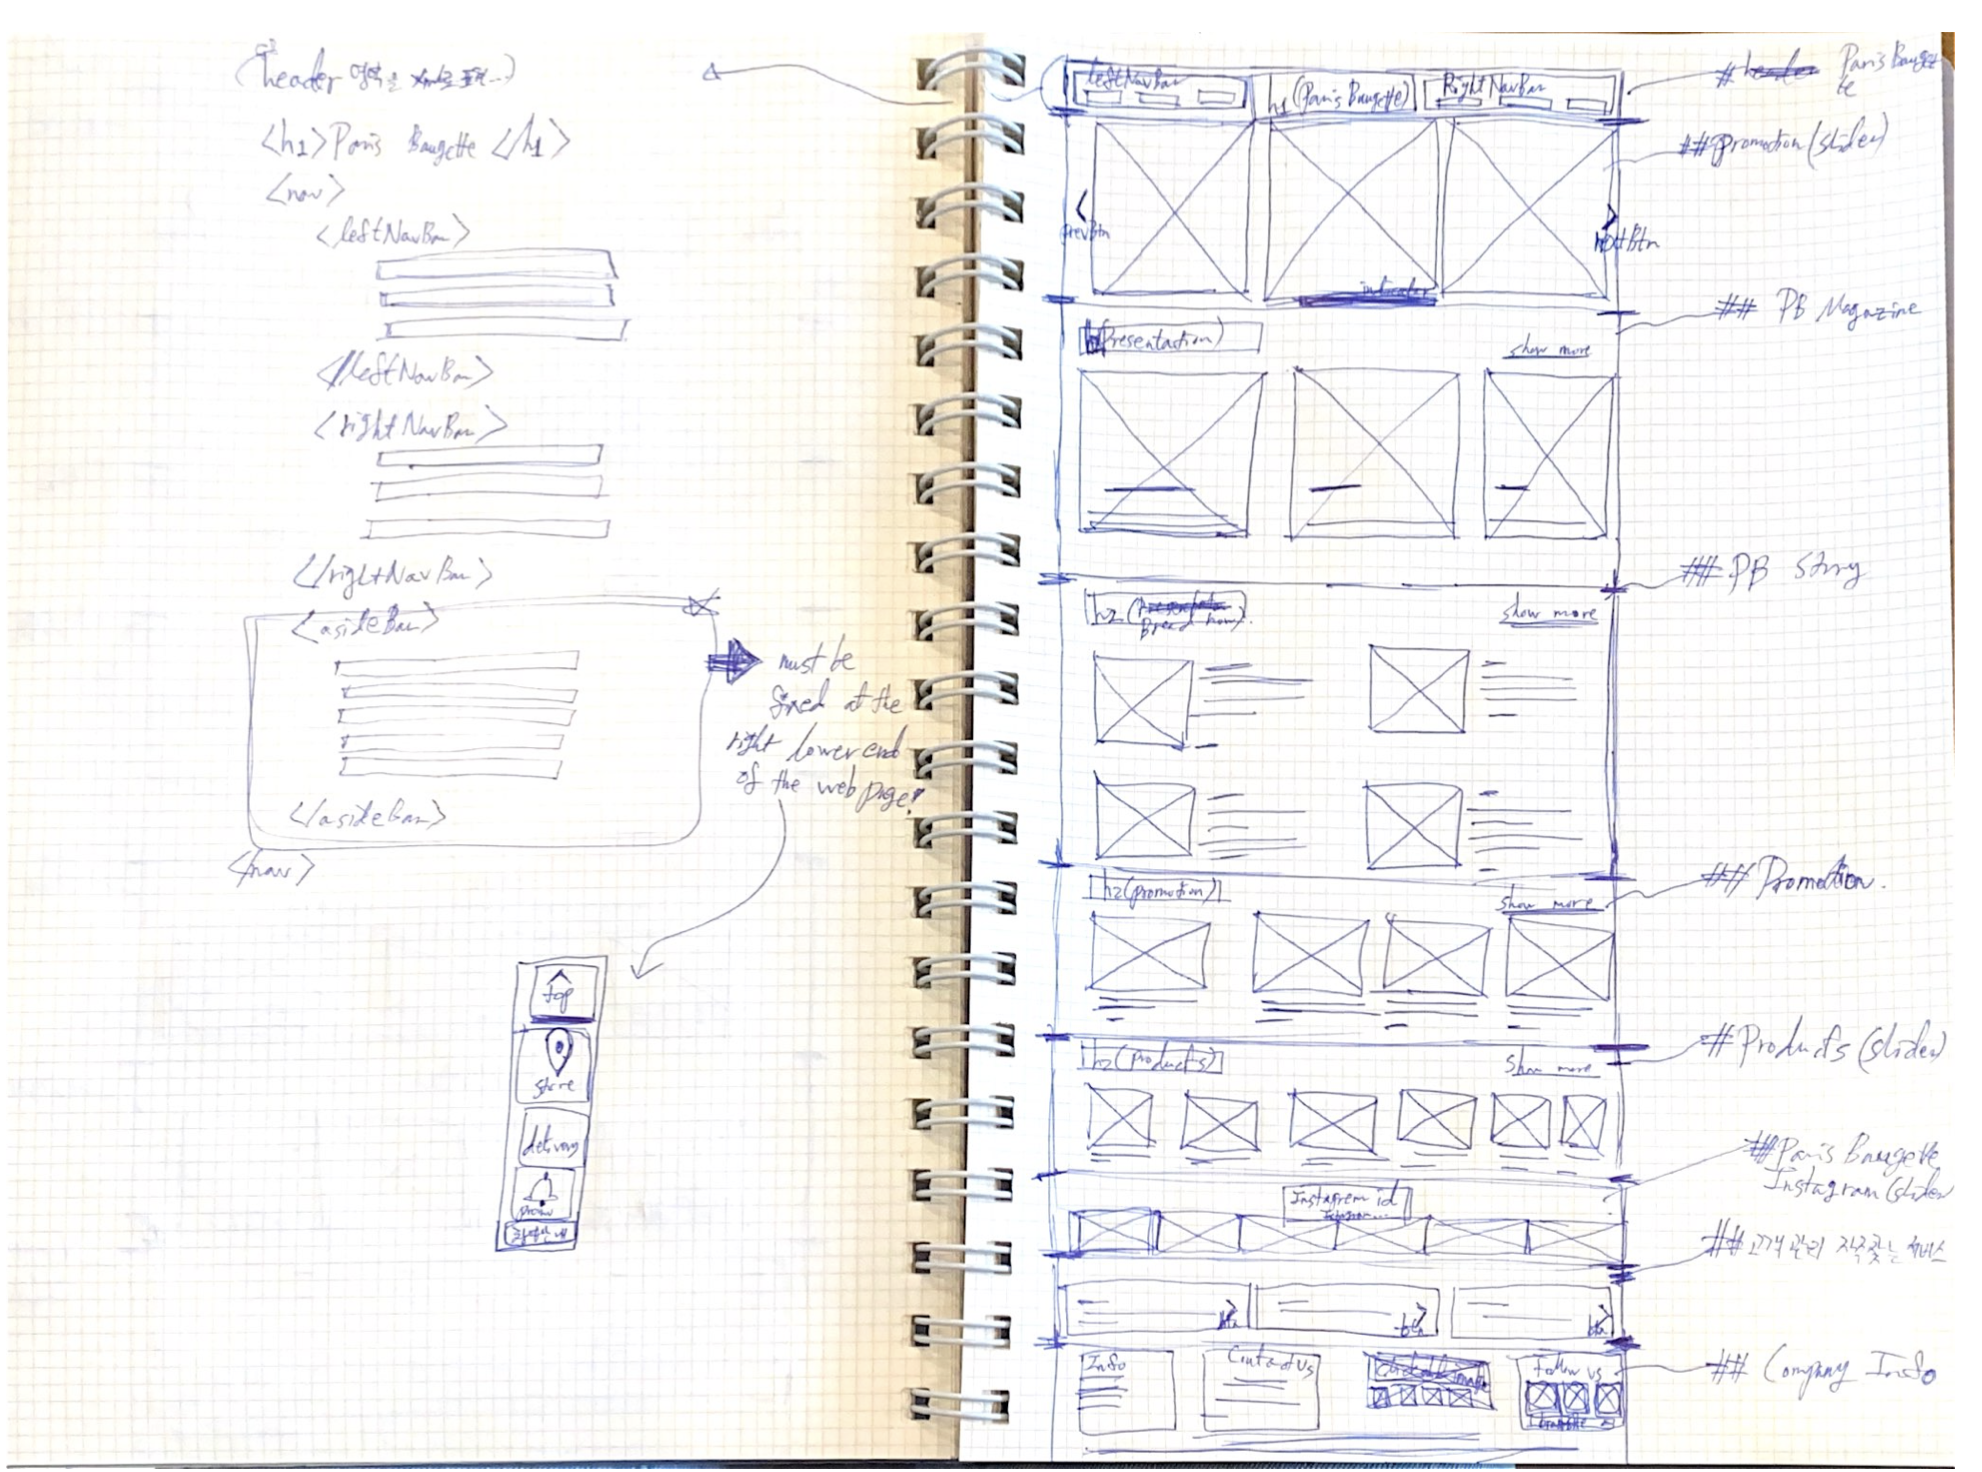 (header 영역을
<h1>Paris Baugette </h1>
<nav>
<leftNavBar>
</leftNavBar>
<rightNavBar>
</rightNavBar>
<asideBar>
</asideBar>
<nav>
must be
fixed at the
right lower end
of the web page!
top
store
delivery
promo
leftNavBar
h1 (Paris Baugette)
Right NavBar
# header Paris Baugette
te
## promotion (slider)
<
prevBtn
>
nextBtn
indicator
## PB Magazine
(Presentastion)
show more
## PB Story
h2 (
Bread
show more
## Promotion.
h2 (promotion)
show more
# Products (slider)
h2 (products)
show more
## Paris Baugette
Instagram (slider
Instagrem id
## 고객관리 자주찾는 서비스
btn
btn
btn
## Company Info
Info
Contact Us
Follow us